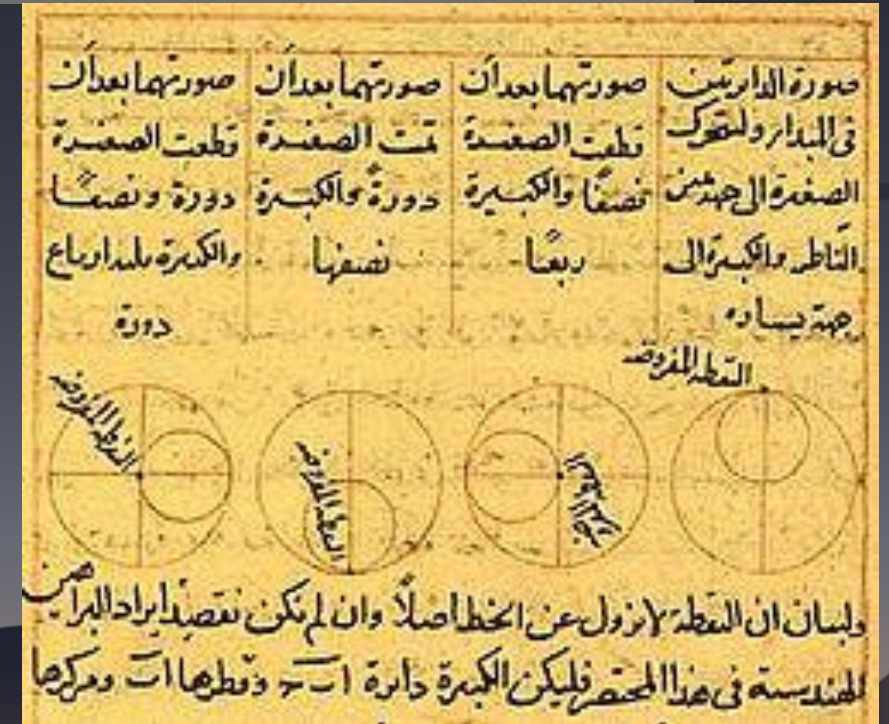 صورة الدايرتين
في المبدا ولتتحرك
الصغيرة الى جهة يمين
الناظر والكبيرة الى
جهة يساره
صورتهما بعد ان
قطعت الصغيرة
نصفًا والكبيرة
ربعًا
صورتهما بعد ان
تمت الصغيرة
دورةً والكبيرة
نصفها
صورتهما بعد ان
قطعت الصغيرة
دورة ونصفًا
والكبيرة ثلثة ارباع
دورة
النقطة المفروضة
النقطة المفروضة
النقطة المفروضة
النقطة المفروضة
ولبيان ان النقطة لا تزول عن الخط اصلاً وان لم نكن نقصد ايراد البراهين
الهندسية في هذا المختصر فليكن الكبيرة دائرة وقطرها ومركزها